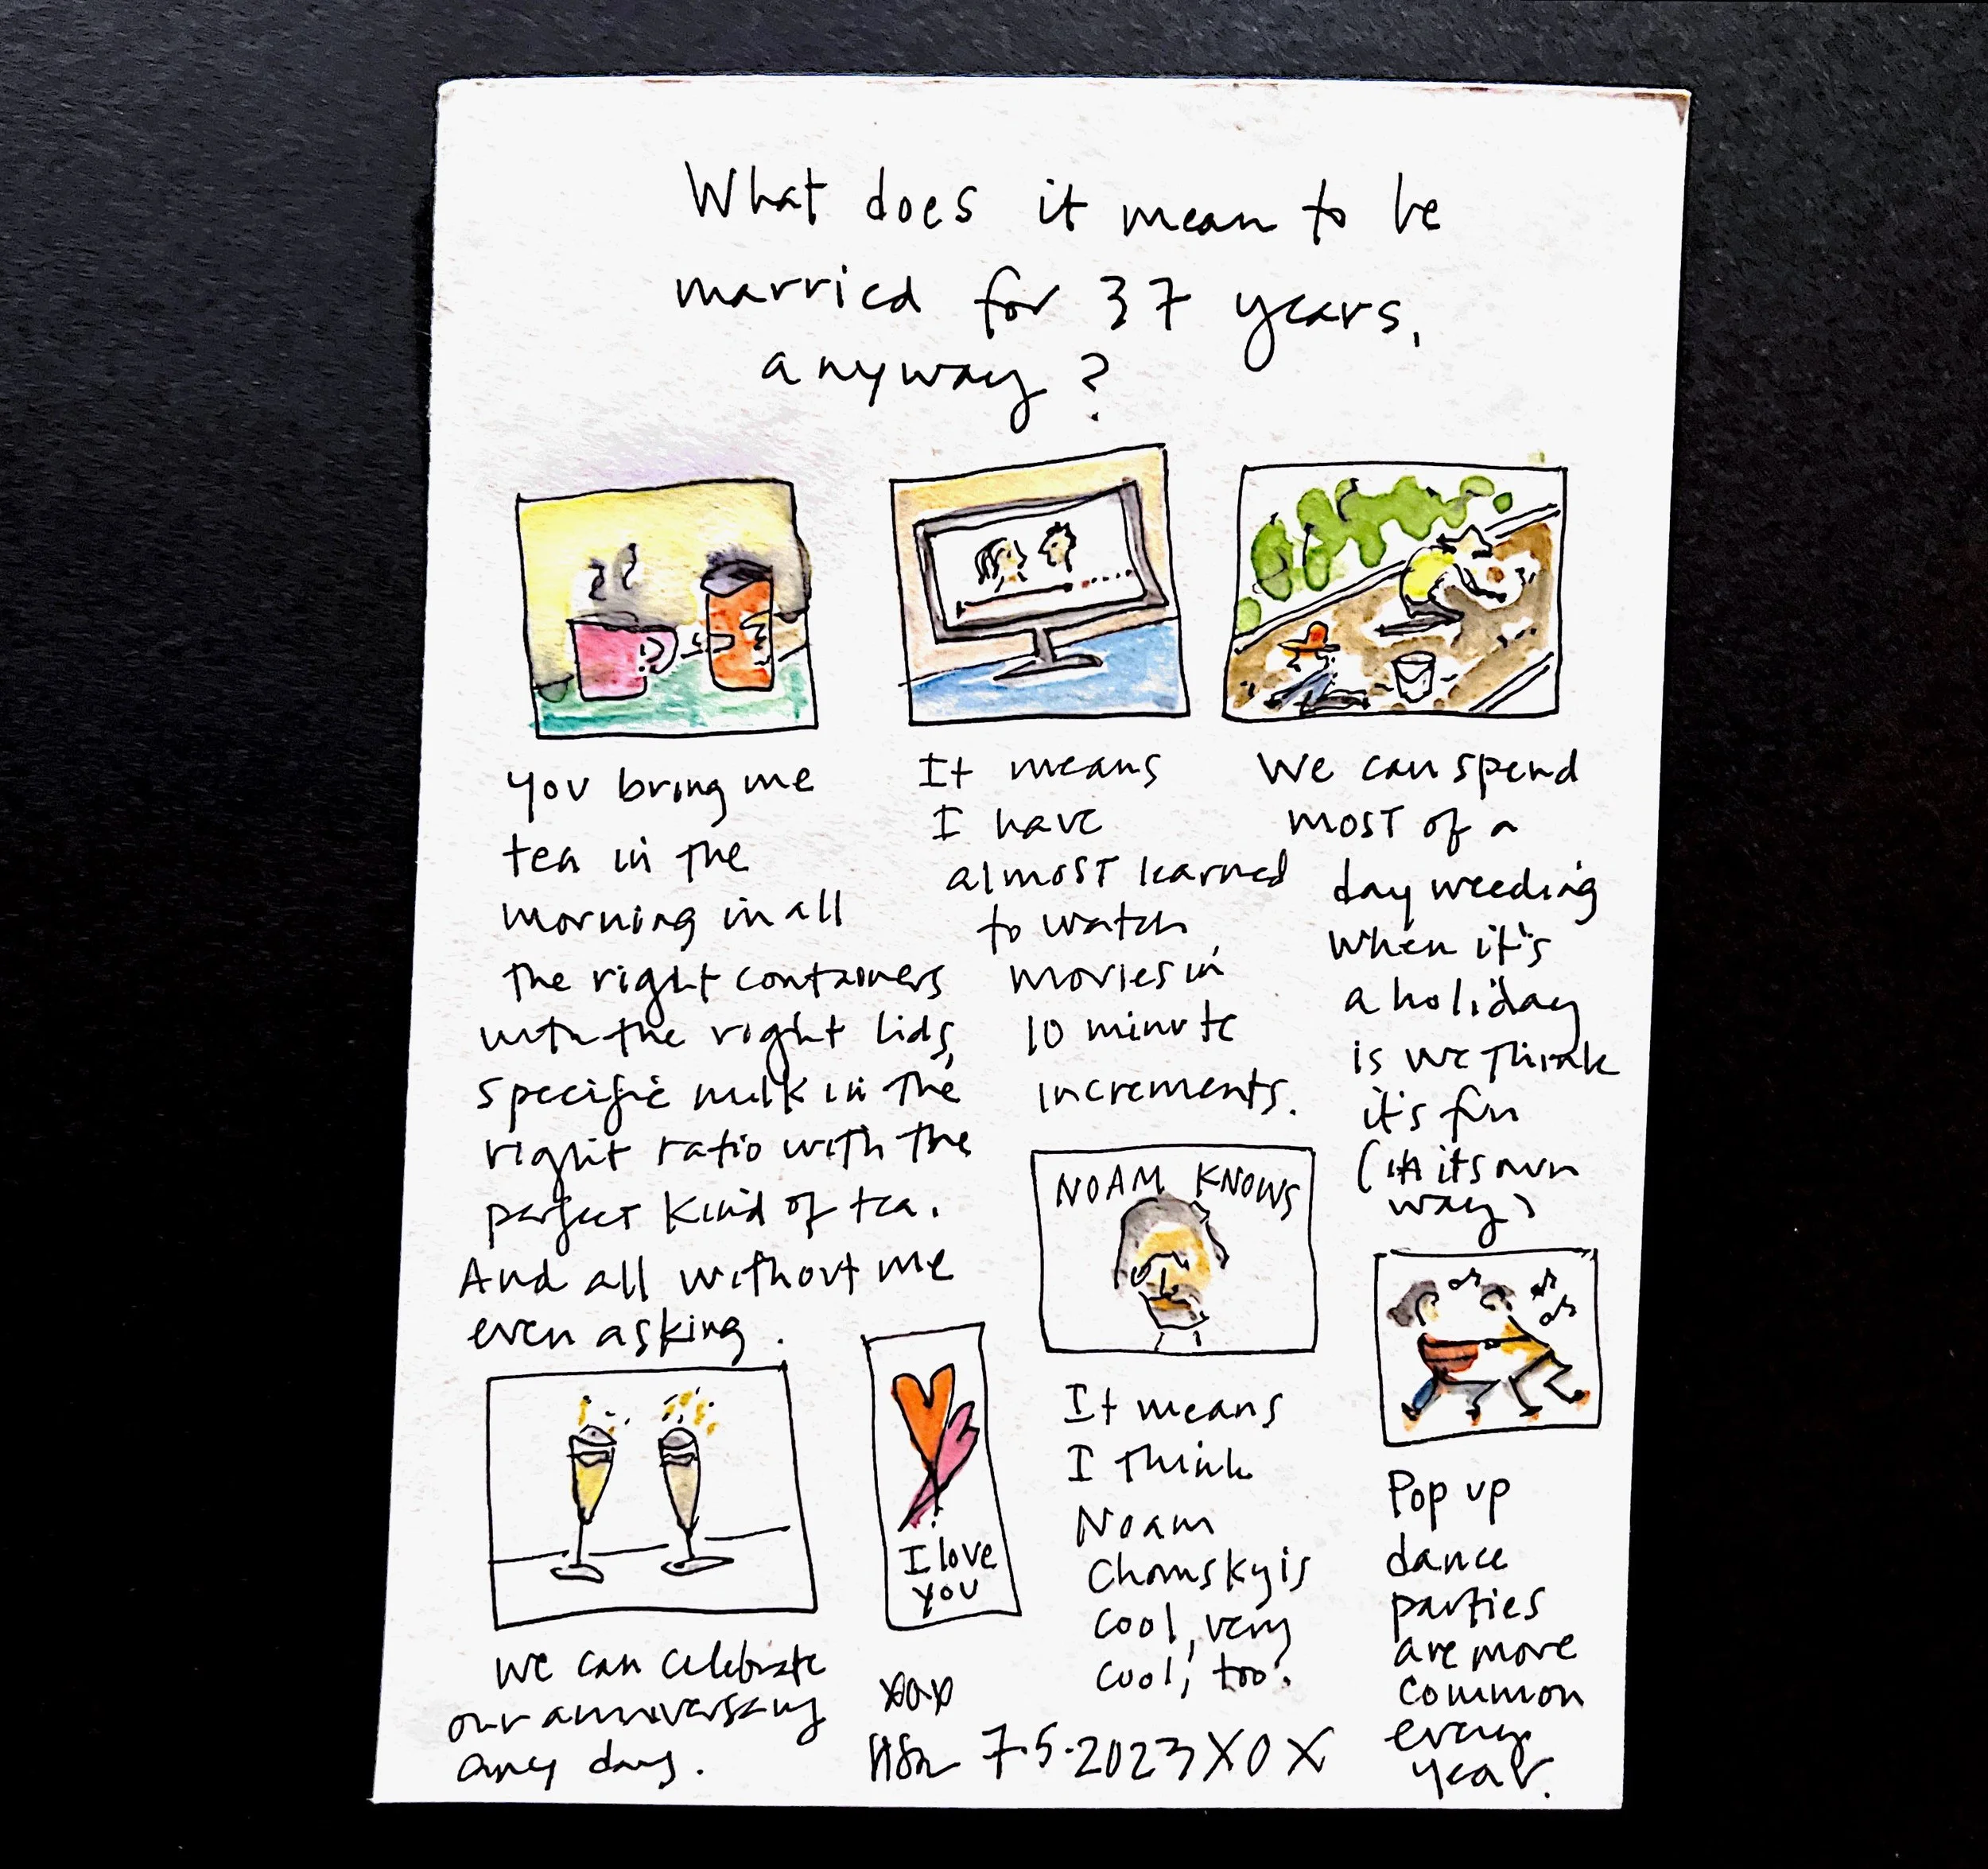 What does it mean to be
married for 37 years,
anyway?
you bring me
tea in the
morning in all
the right containers
with the right lids,
specific milk in the
right ratio with the
perfect kind of tea.
And all without me
even asking.
It means
I have
almost learned
to watch
movies in
10 minute
increments.
We can spend
most of a
day weeding
when it's
a holiday
is we think
it's fun
(in its own
way)
NOAM KNOWS
It means
I think
Noam
Chomsky is
cool, very
cool, too.
Pop up
dance
parties
are more
common
every
year.
we can celebrate
our anniversary
any day.
I love
you
xox
7.5.2023 XOX